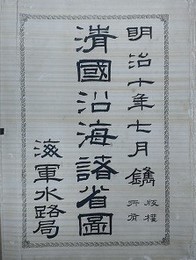 明治十年七月鐫 版權所有
清國沿海諸省圖
海軍水路局